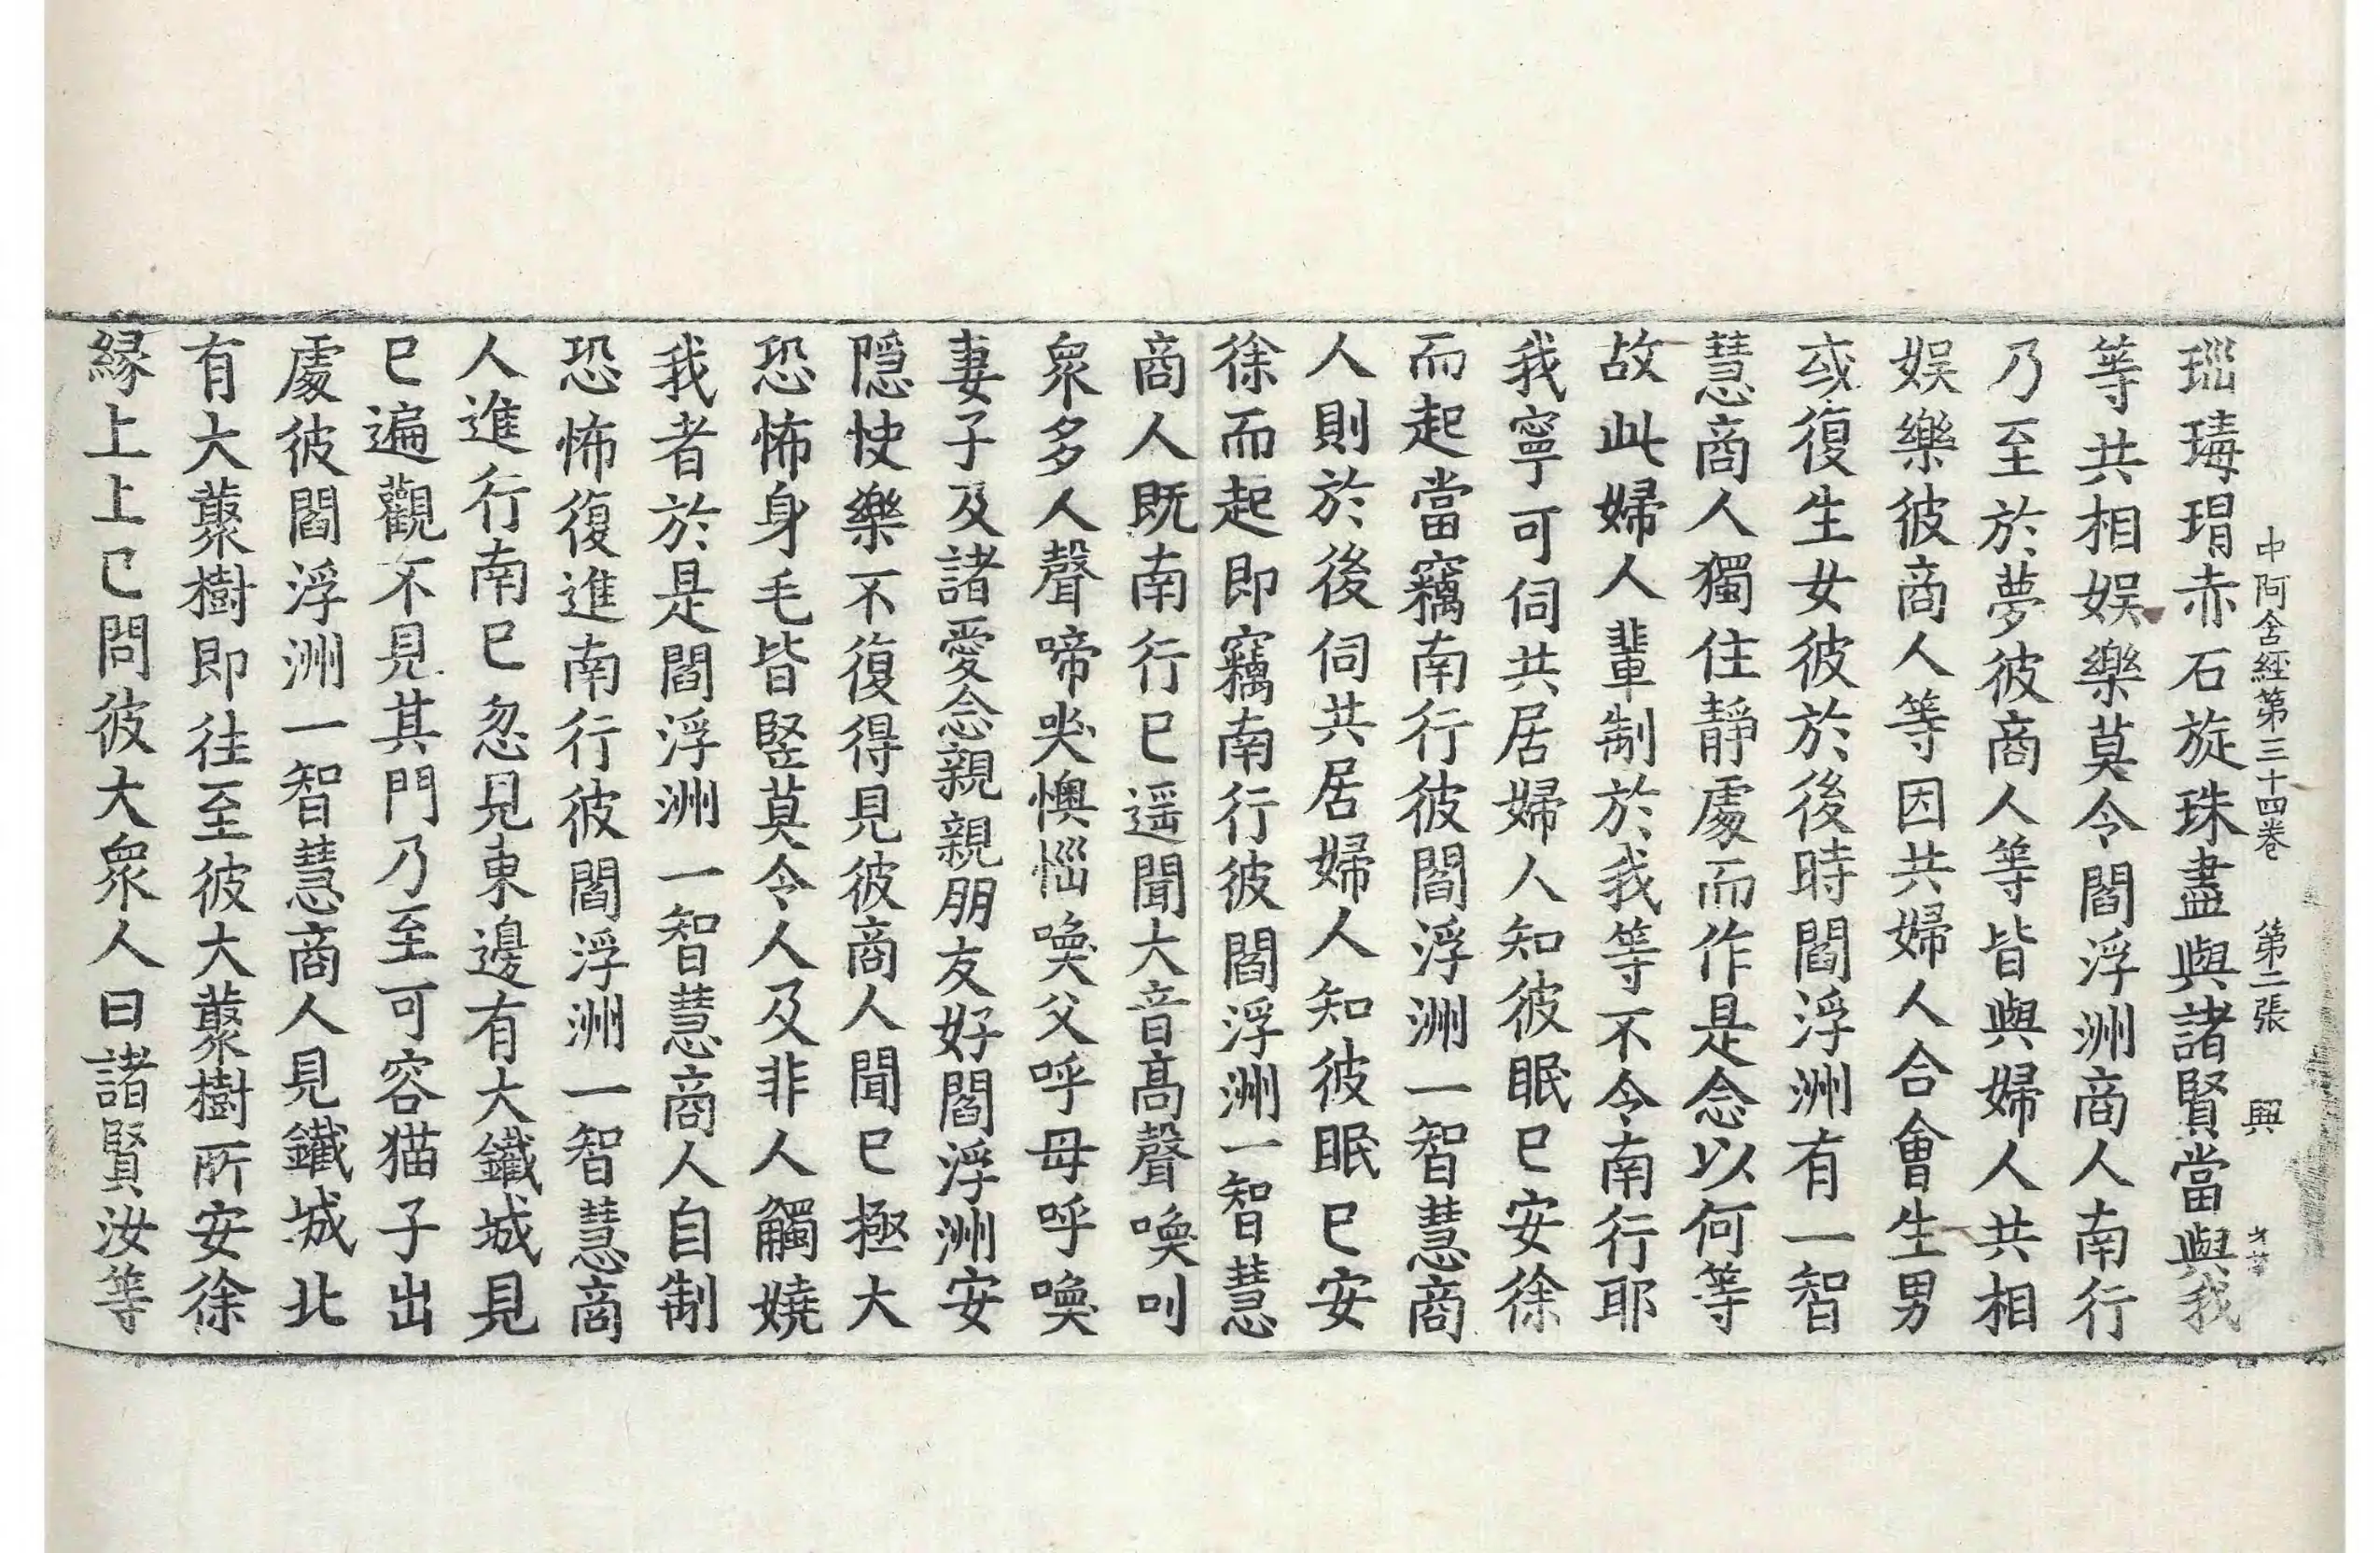 中阿含經第三十四卷 第二張 興
瑙瑇瑁赤石旋珠盡與諸賢當與我
等共相娛樂莫令閻浮洲商人南行
乃至於夢彼商人等皆與婦人共相
娛樂彼商人等因共婦人合會生男
或復生女彼於後時閻浮洲有一智
慧商人獨住靜處而作是念以何等
故此婦人輩制於我等不令南行耶
我寧可伺共居婦人知彼眠已安徐
而起當竊南行彼閻浮洲一智慧商
人則於後伺共居婦人知彼眠已安
徐而起即竊南行彼閻浮洲一智慧
商人既南行已遥聞大音高聲喚叫
衆多人聲啼哭懊惱喚父呼母呼喚
妻子及諸愛念親親朋友好閻浮洲安
隱快樂不復得見彼商人聞已極大
恐怖身毛皆竪莫令人及非人觸嬈
我者於是閻浮洲一智慧商人自制
恐怖復進南行彼閻浮洲一智慧商
人進行南已忽見東邊有大鐵城見
已遍觀不見其門乃至可容猫子出
處彼閻浮洲一智慧商人見鐵城北
有大藂樹即往至彼大藂樹所安徐
緣上上已問彼大衆人曰諸賢汝等